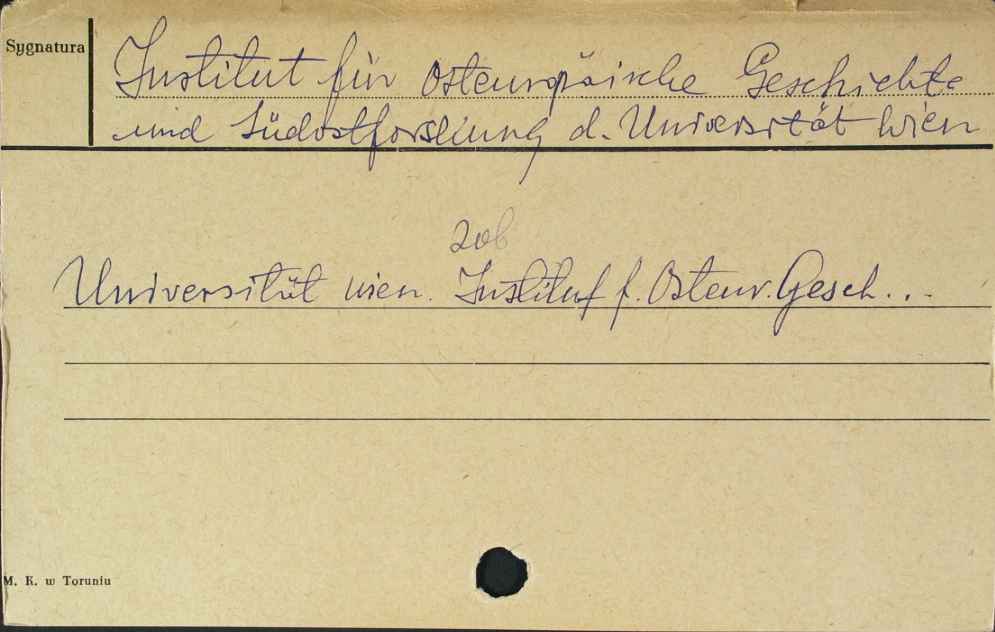 Sygnatura
Institut für Osteuropäische Geschichte
und Südostforschung d. Universität Wien
zob
Universität Wien. Institut f. Osteur. Gesch...
M. K. w Toruniu